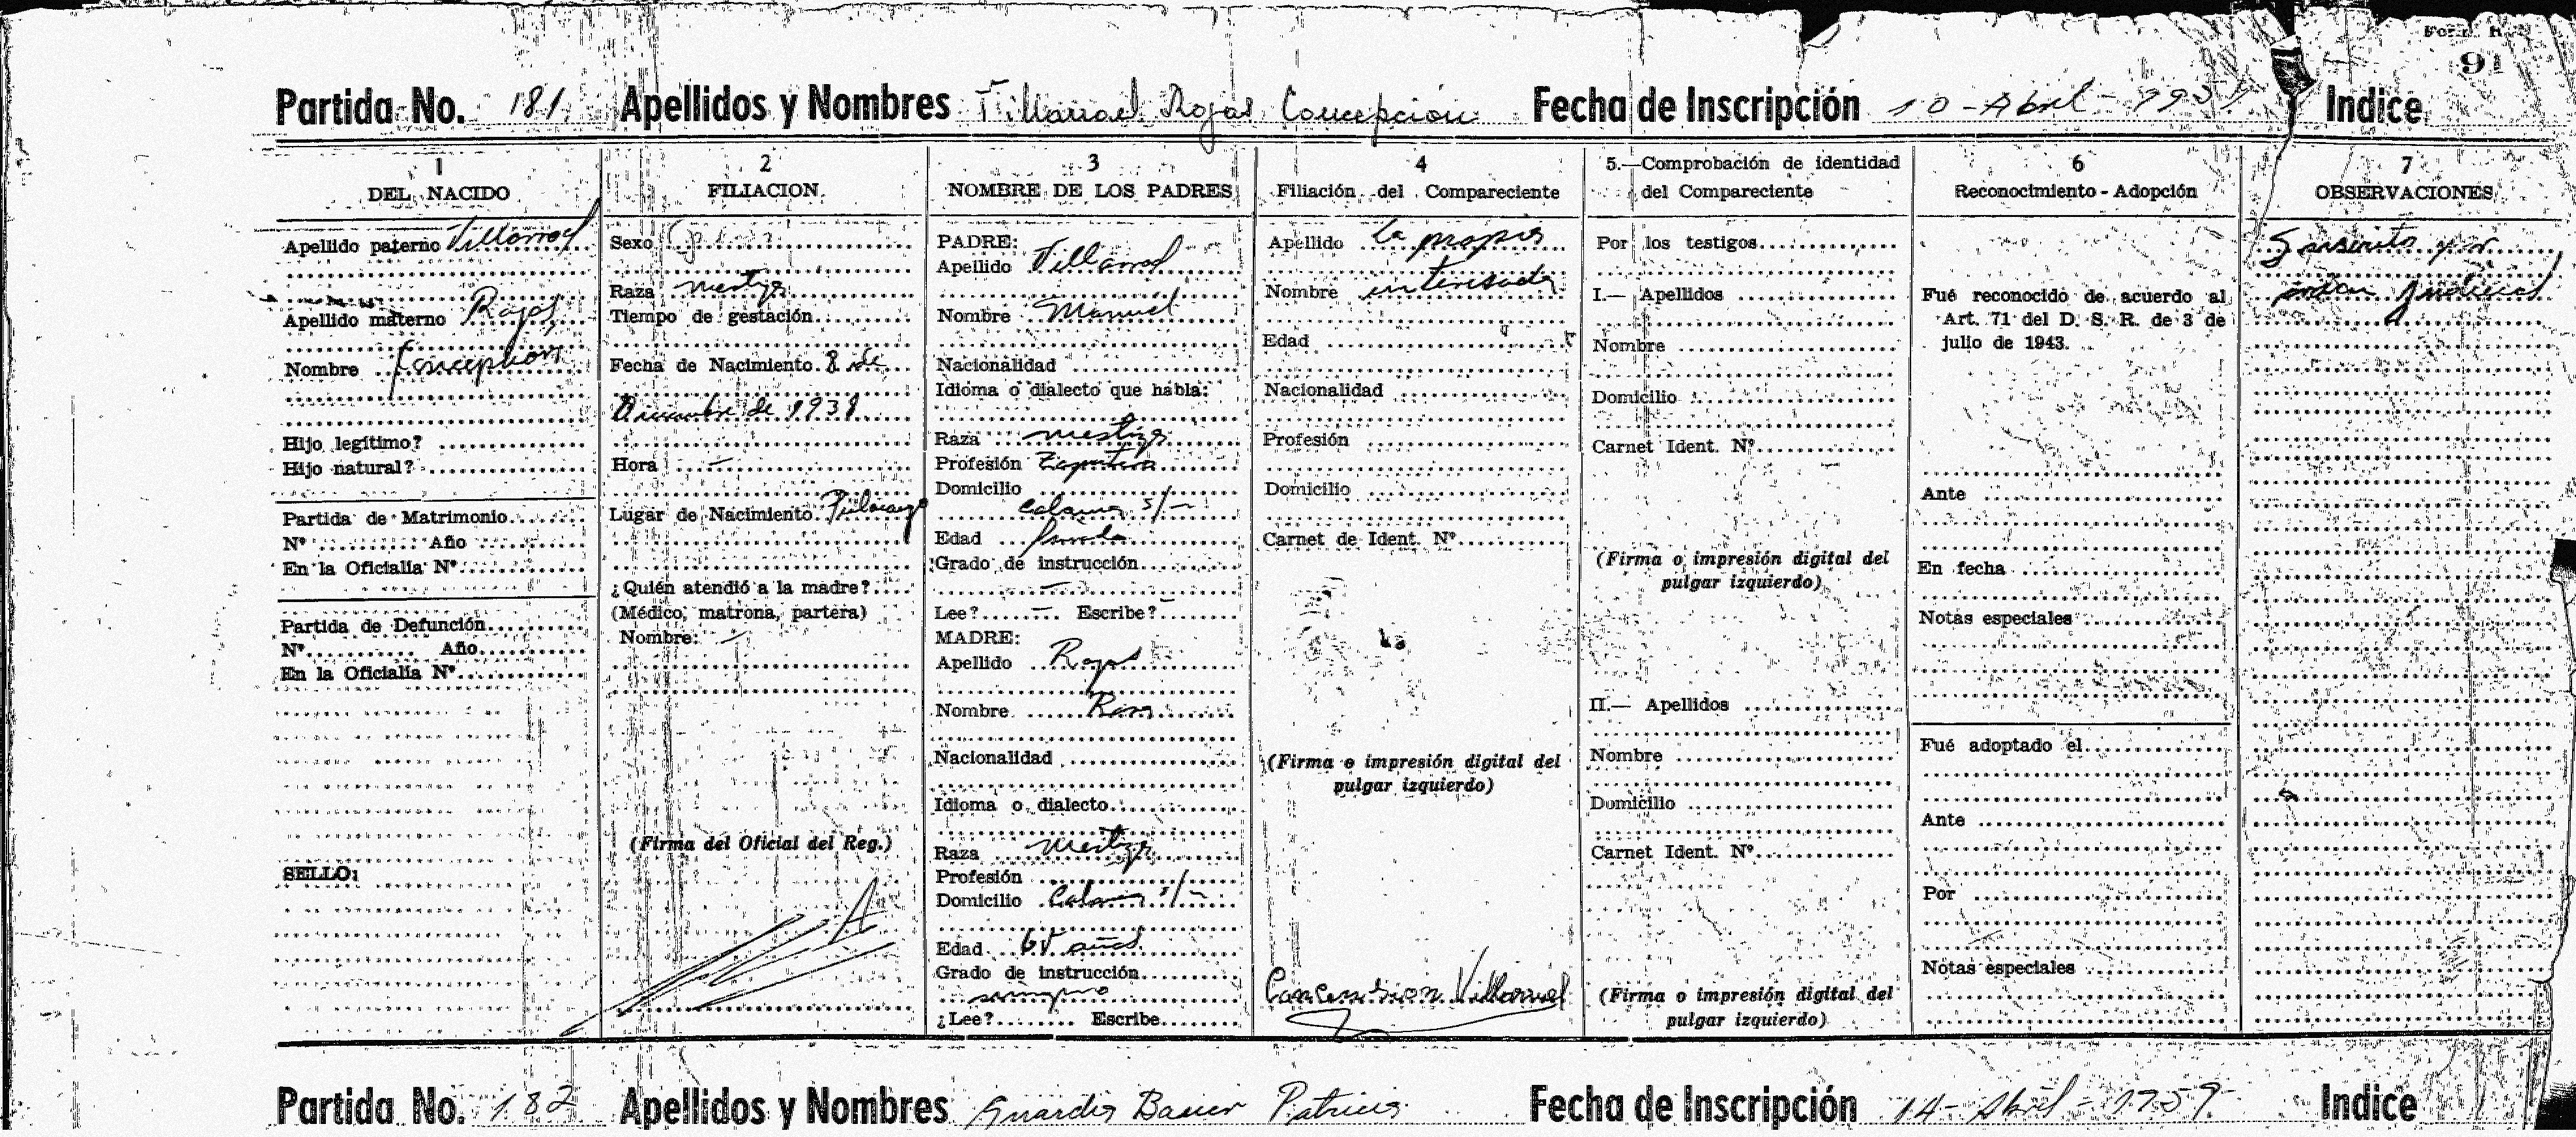 Form. R.
91
Partida No. 181 Apellidos y Nombres Villarroel Rojas Concepción Fecha de Inscripción 10 - Abril - Indice
1
DEL NACIDO
Apellido paterno Villarroel
Apellido materno Rojas
Nombre Concepción
Hijo legítimo?
Hijo natural?
Partida de Matrimonio
Nº Año
En la Oficialía Nº
Partida de Defunción
Nº Año
En la Oficialía Nº
SELLO:
2
FILIACION
Sexo
Raza mestiza
Tiempo de gestación
Fecha de Nacimiento 8 de
Diciembre de 1938
Hora -
Lugar de Nacimiento
¿Quién atendió a la madre?
(Médico, matrona, partera)
Nombre: -
(Firma del Oficial del Reg.)
3
NOMBRE DE LOS PADRES
PADRE:
Apellido Villarroel
Nombre Manuel
Nacionalidad
Idioma o dialecto que habla:
Raza mestiza
Profesión Zapatero
Domicilio
Calama s/-
Edad
Grado de instrucción
-
Lee? - Escribe? -
MADRE:
Apellido Rojas
Nombre Rosa
Nacionalidad
Idioma o dialecto
Raza mestiza
Profesión
Domicilio Calama s/-
Edad 65 años
Grado de instrucción
ninguno
¿Lee? Escribe
4
Filiación del Compareciente
Apellido La propia
Nombre interesada
Edad
Nacionalidad
Profesión
Domicilio
Carnet de Ident. Nº
(Firma o impresión digital del
pulgar izquierdo)
Villarroel
5.—Comprobación de identidad
del Compareciente
Por los testigos
I.— Apellidos
Nombre
Domicilio
Carnet Ident. Nº
(Firma o impresión digital del
pulgar izquierdo)
II.— Apellidos
Nombre
Domicilio
Carnet Ident. Nº
(Firma o impresión digital del
pulgar izquierdo)
6
Reconocimiento - Adopción
Fué reconocido de acuerdo al
Art. 71 del D. S. R. de 3 de
julio de 1943.
Ante
En fecha
Notas especiales
Fué adoptado el
Ante
Por
Notas especiales
7
OBSERVACIONES
Inscrito por
orden Judicial
Partida No. 182 Apellidos y Nombres Guardia Bauer Patricia Fecha de Inscripción 14 - Abril - 1959 Indice